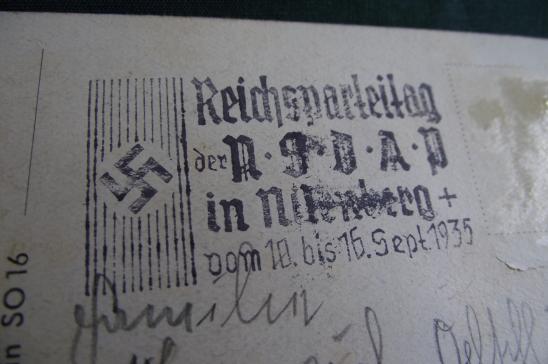 Reichsparteitag
der N·S·D·A·P
in Nürnberg +
vom 10. bis 16. Sept. 1935
Familie
in SO 16